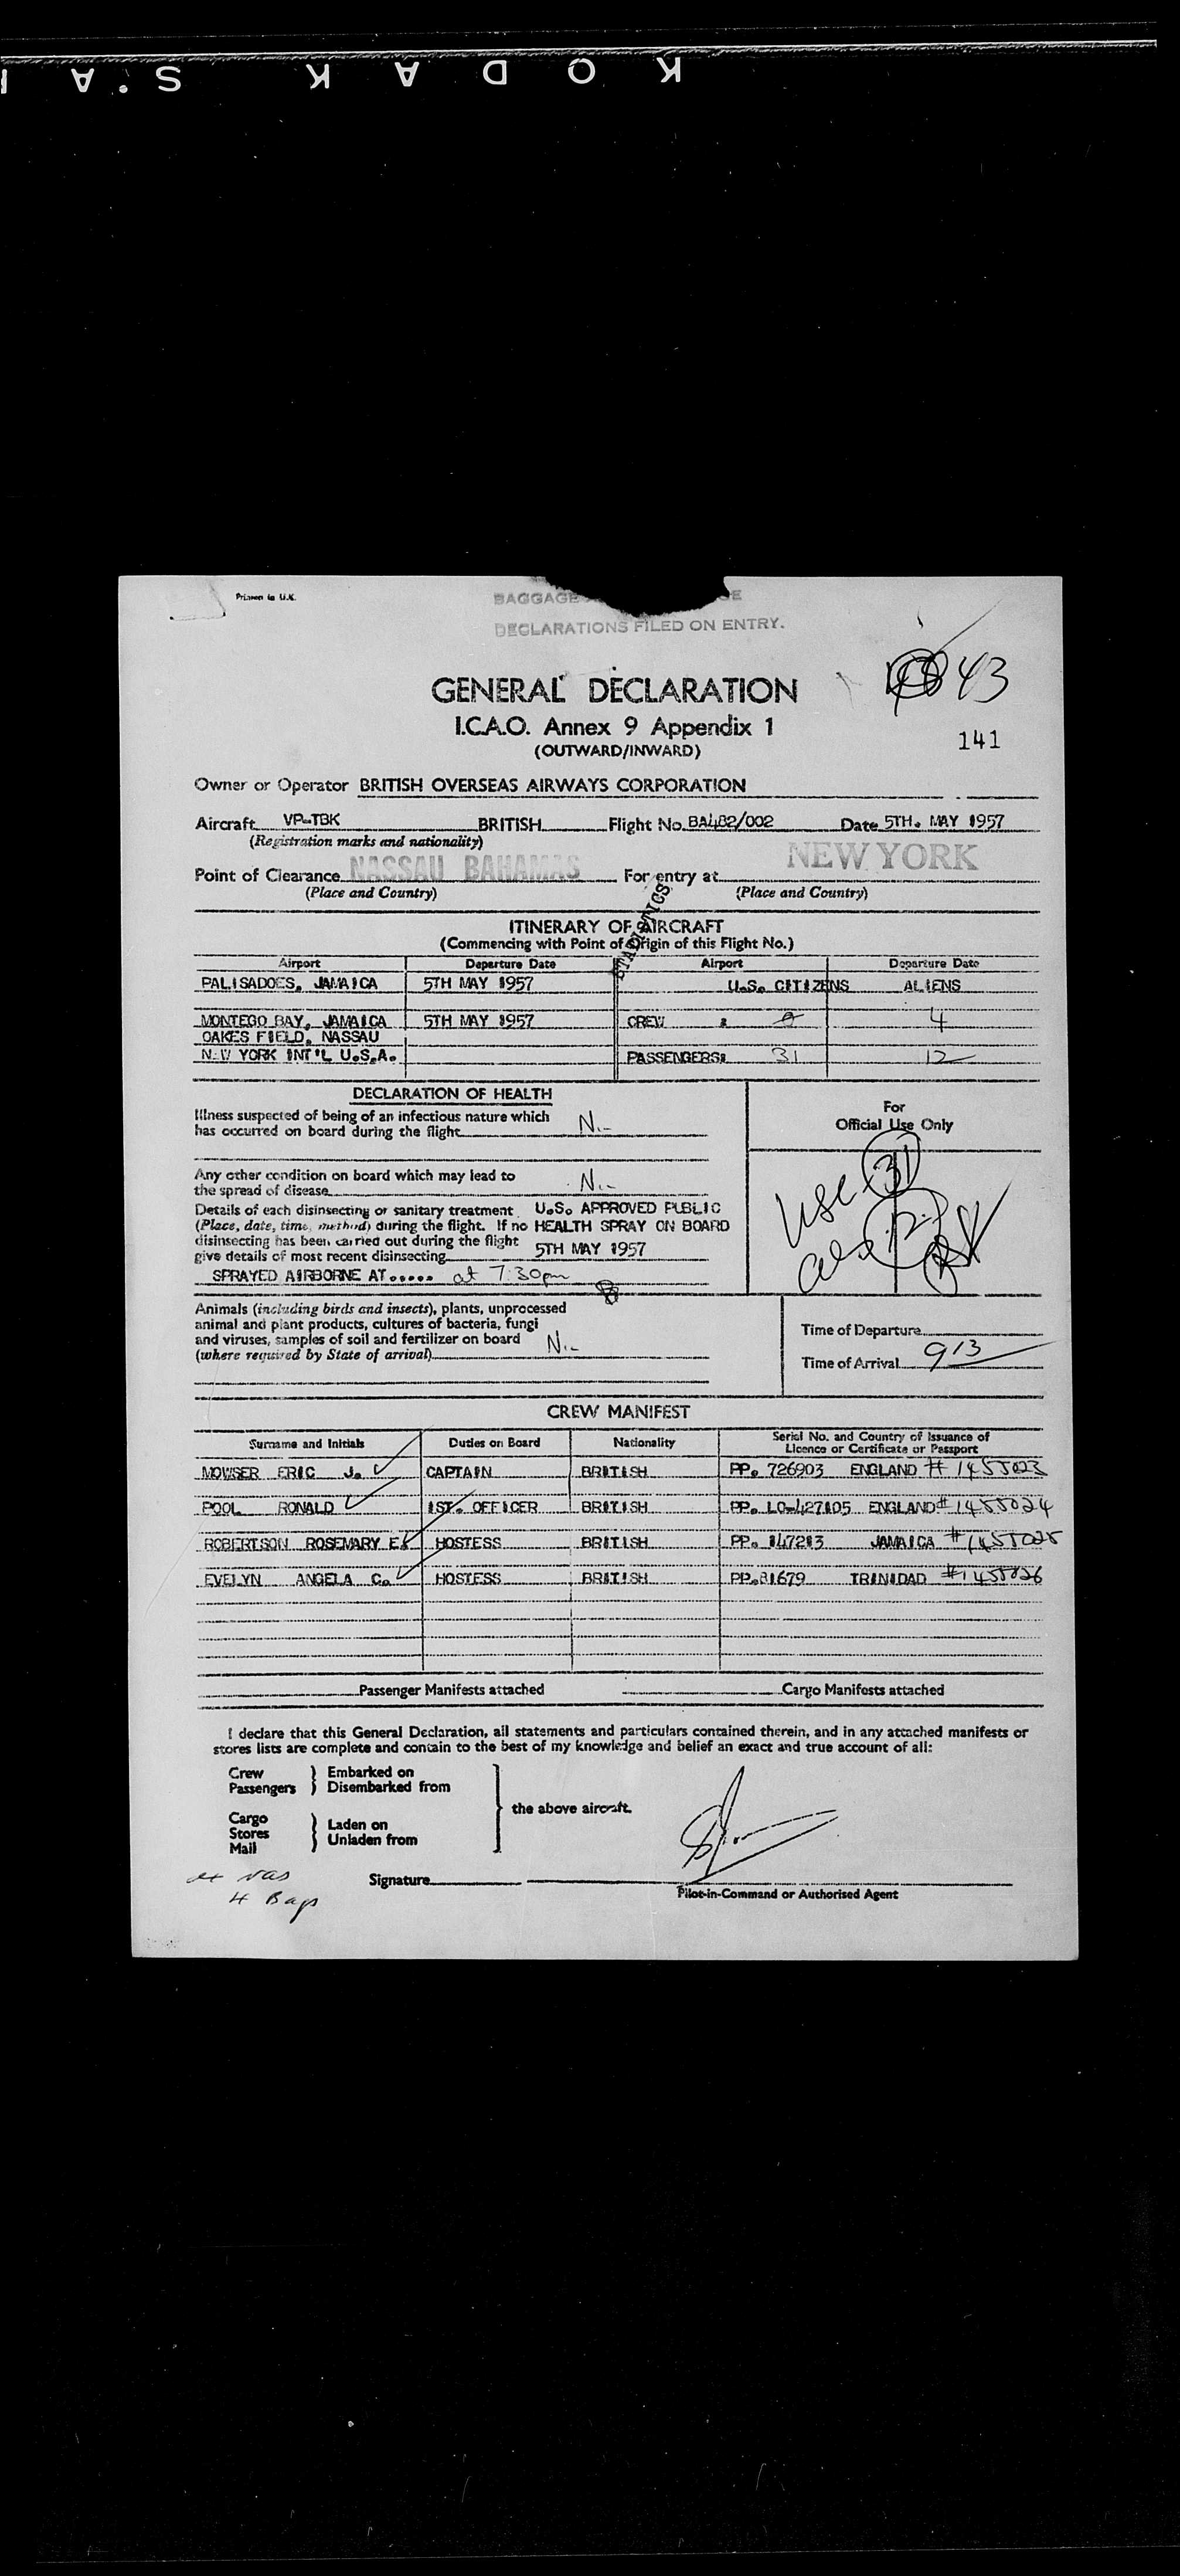 KODAK S.A
Printed in U.K.
BAGGAGE
DECLARATIONS FILED ON ENTRY.
43
GENERAL DECLARATION
I.C.A.O. Annex 9 Appendix 1
(OUTWARD/INWARD)
141
Owner or Operator BRITISH OVERSEAS AIRWAYS CORPORATION
Aircraft VP-TBK BRITISH Flight No. BA482/002 Date 5TH. MAY 1957
(Registration marks and nationality)
Point of Clearance NASSAU BAHAMAS For entry at NEW YORK
(Place and Country) (Place and Country)
STATISTICS
ITINERARY OF AIRCRAFT
(Commencing with Point of Origin of this Flight No.)
Airport Departure Date Airport Departure Date
PALISADOES, JAMAICA 5TH MAY 1957 U.S. CITIZENS ALIENS
MONTEGO BAY, JAMAICA 5TH MAY 1957 CREW : 0 4
OAKES FIELD, NASSAU
NEW YORK INT'L U.S.A. PASSENGERS: 31 12
DECLARATION OF HEALTH
For
Official Use Only
Illness suspected of being of an infectious nature which
has occurred on board during the flight N.-
Any other condition on board which may lead to
the spread of disease N.-
Details of each disinsecting or sanitary treatment U.S. APPROVED PUBLIC
(Place, date, time, method) during the flight. If no HEALTH SPRAY ON BOARD
disinsecting has been carried out during the flight
give details of most recent disinsecting 5TH MAY 1957
SPRAYED AIRBORNE AT..... at 7:30pm
usc 31
12
Animals (including birds and insects), plants, unprocessed
animal and plant products, cultures of bacteria, fungi
and viruses, samples of soil and fertilizer on board N.-
(where required by State of arrival)
Time of Departure
Time of Arrival 913
CREW MANIFEST
Surname and Initials Duties on Board Nationality Serial No. and Country of Issuance of
Licence or Certificate or Passport
MOWSER ERIC J. CAPTAIN BRITISH PP. 726903 ENGLAND # 1455023
POOL RONALD 1ST. OFFICER BRITISH PP. LO-427105 ENGLAND # 1455024
ROBERTSON ROSEMARY E. HOSTESS BRITISH PP. 147213 JAMAICA # 1455025
EVELYN ANGELA C. HOSTESS BRITISH PP.81679 TRINIDAD # 1455026
Passenger Manifests attached Cargo Manifests attached
I declare that this General Declaration, all statements and particulars contained therein, and in any attached manifests or
stores lists are complete and contain to the best of my knowledge and belief an exact and true account of all:
Crew } Embarked on
Passengers } Disembarked from
the above aircraft.
Cargo
Stores } Laden on
Mail } Unladen from
Signature
Pilot-in-Command or Authorised Agent
4 Bags